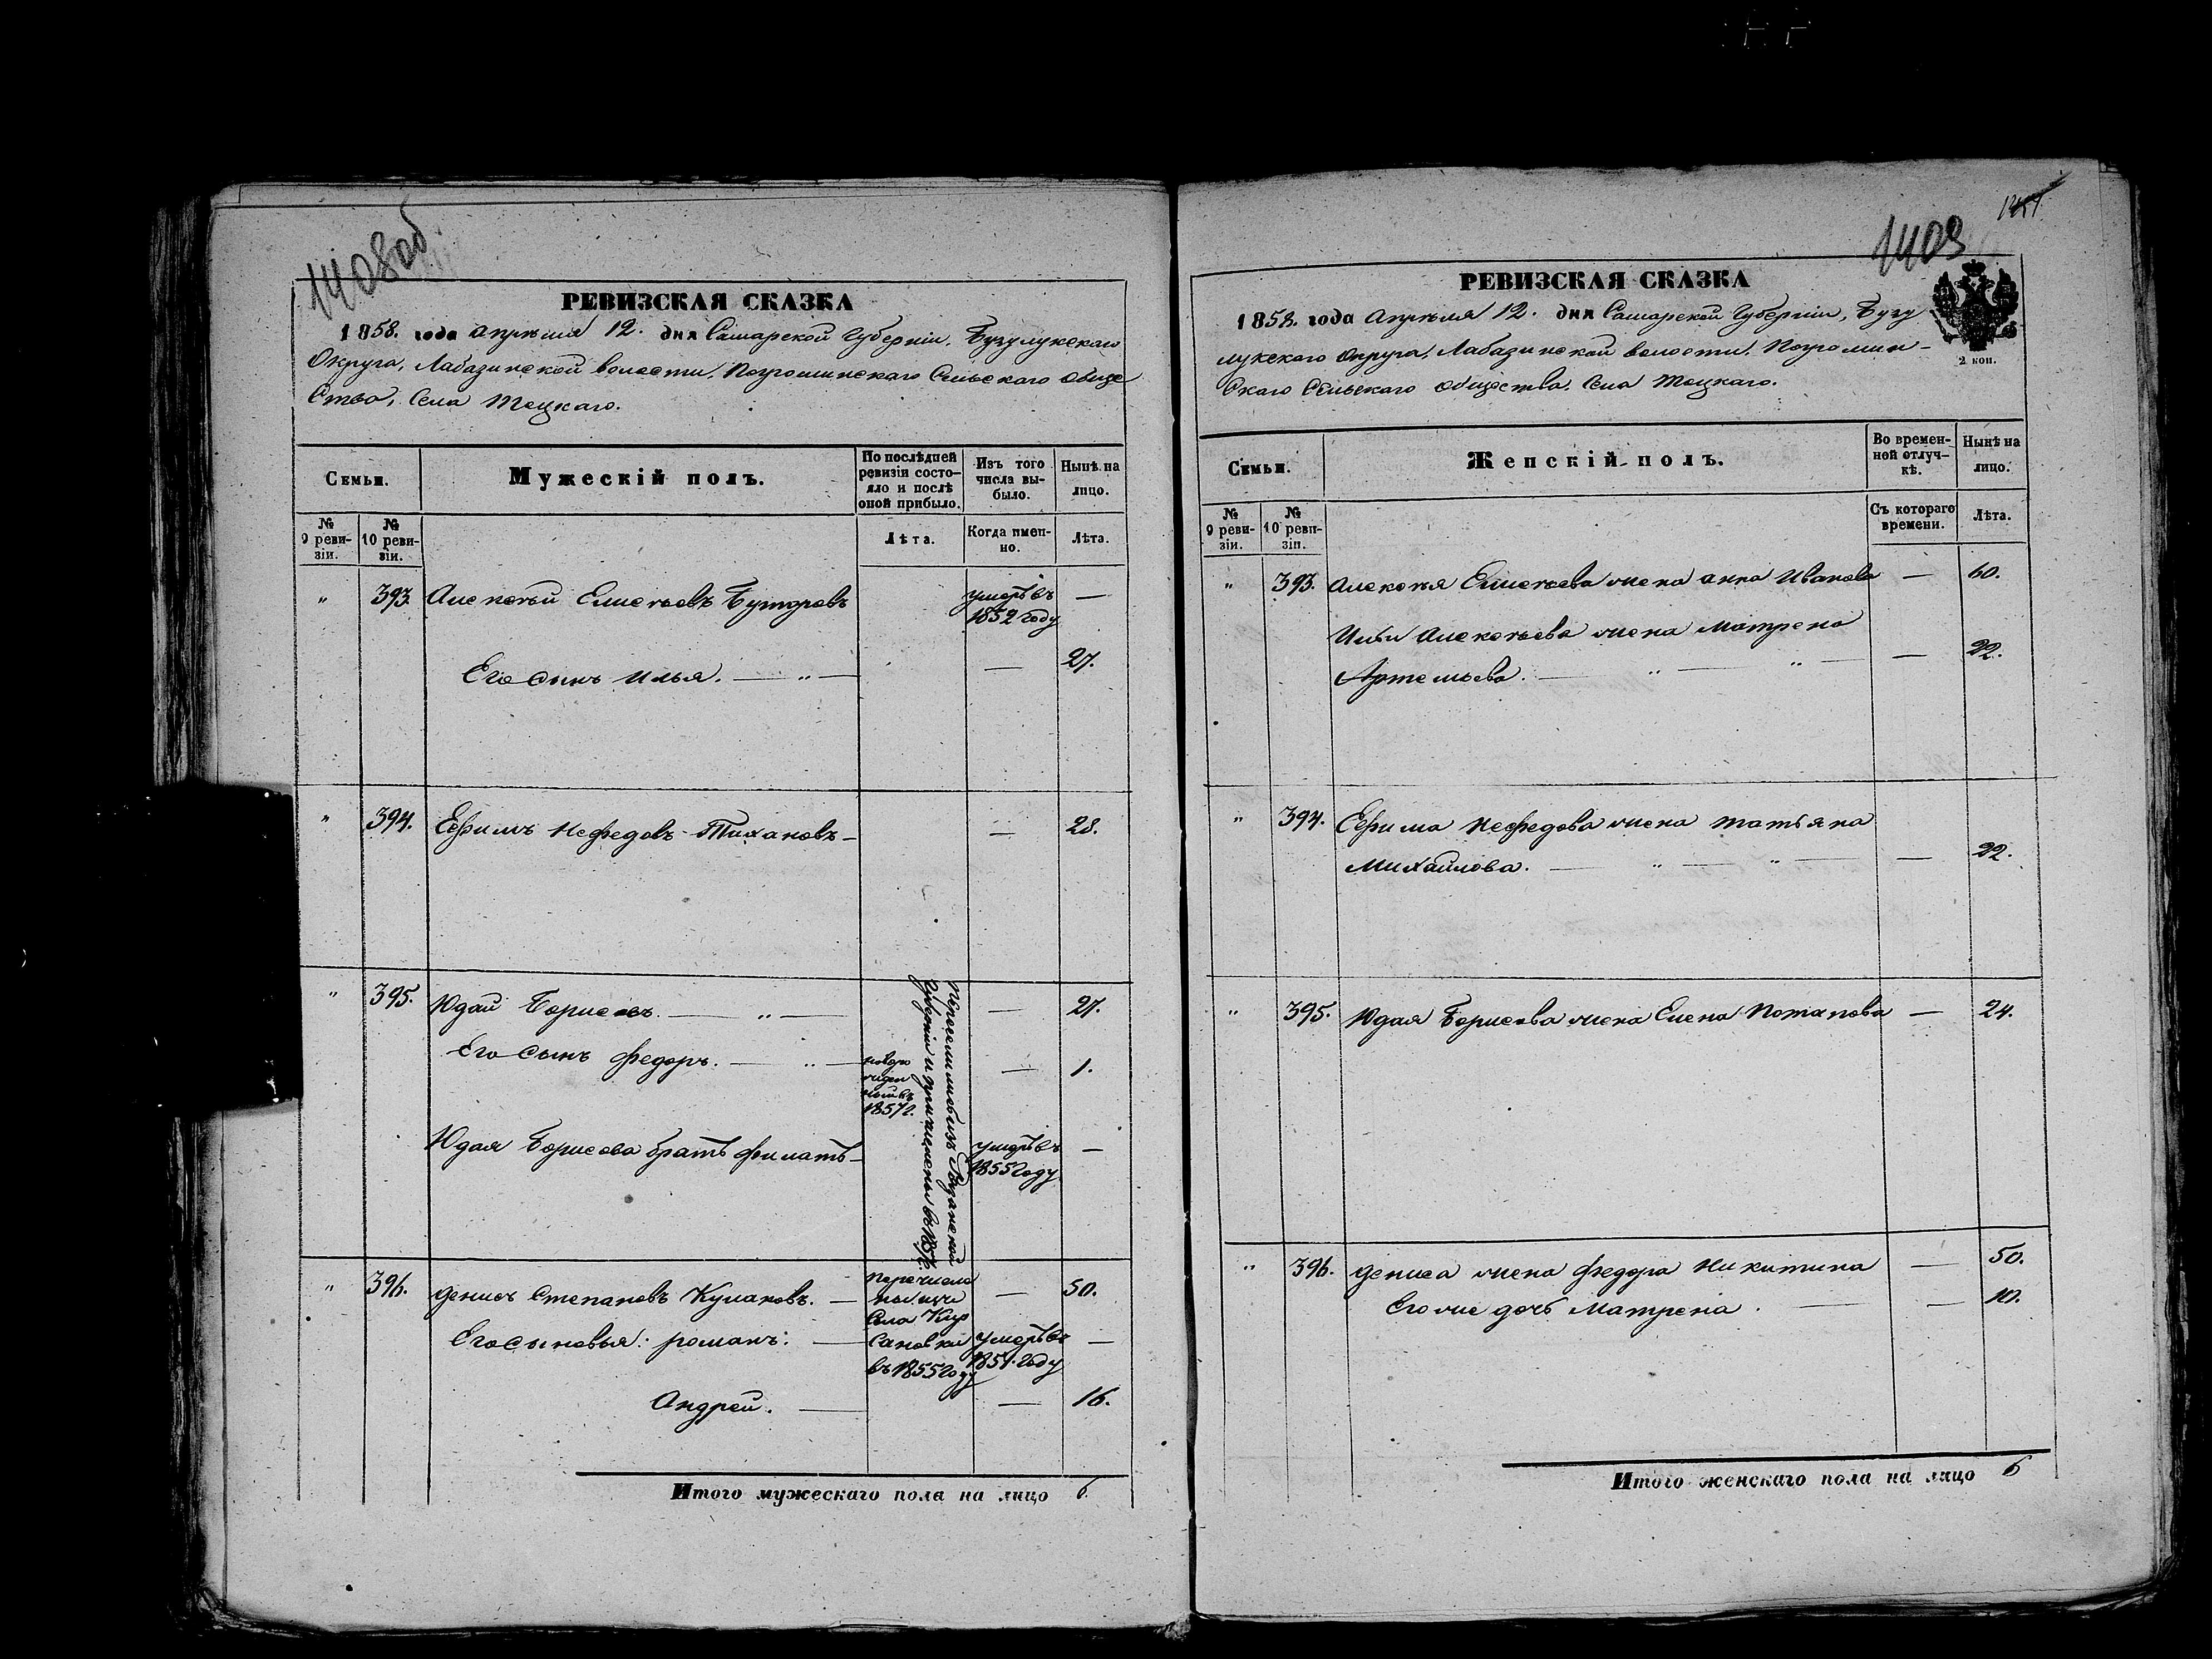 1408об.
РЕВИЗСКАЯ СКАЗКА
1858. года апреля 12. дня Самарской Губерніи, Бузулукскаго
Округа, Лабазинской волости, Погроминскаго Сельскаго обще
ства, Села Тоцкаго.
Семьи.
Мужескій полъ.
По послѣдней
ревизіи состо-
яло и послѣ
оной прибыло.
Изъ того
числа вы-
было.
Нынѣ на
лицо.
№
9 реви-
зіи.
№
10 реви-
зіи.
Лѣта.
Когда имен-
но.
Лѣта.
" 393. Алексѣй Елисѣевъ Буторовъ умеръ въ —
1852 году
Его сынъ Илья. — " — — 27.
" 394. Ефимъ Нефедовъ Тихановъ — — 28.
" 395. Юдай Борисовъ. — " — — 27.
Его сынъ Федоръ. — " — новоро — 1.
жден
ной въ
1857 г.
Юдая Борисова братъ Филатъ — умеръ въ —
1855 году
губерніи и причислены въ 1857 г.
" 396. Денисъ Степановъ Кулаковъ. — перечисле — 50.
ны изъ
села Кир
Его сыновья: Романъ: — сановки умеръ въ —
въ 1855 году 1851 году
Андрей. — — 16.
Итого мужескаго пола на лицо 6.
1409
РЕВИЗСКАЯ СКАЗКА
1858. года Апреля 12. дня Самарской Губерніи, Бузу
лукскаго округа, Лабазинской волости, Погромин-
скаго Сельскаго общества, Села Тоцкаго.
2 коп.
Семьи.
Женскій полъ.
Во времен-
ной отлуч-
кѣ.
Нынѣ на
лицо.
№
9 реви-
зіи.
№
10 реви-
зіи.
Съ котораго
времени.
Лѣта.
" 393. Алексѣя Елисѣева жена Анна Иванова — 60.
Ильи Алексѣева жена Матрена
Артемьева. — " — " — — 22.
" 394. Ефима Нефедова жена Татьяна
Михайлова. — " — " — — 22.
" 395. Юдая Борисова жена Елена Потапова — 24.
" 396. Дениса жена Федора Никитина — 50.
Его же дочь Матрена. — — 10.
Итого женскаго пола на лицо 6